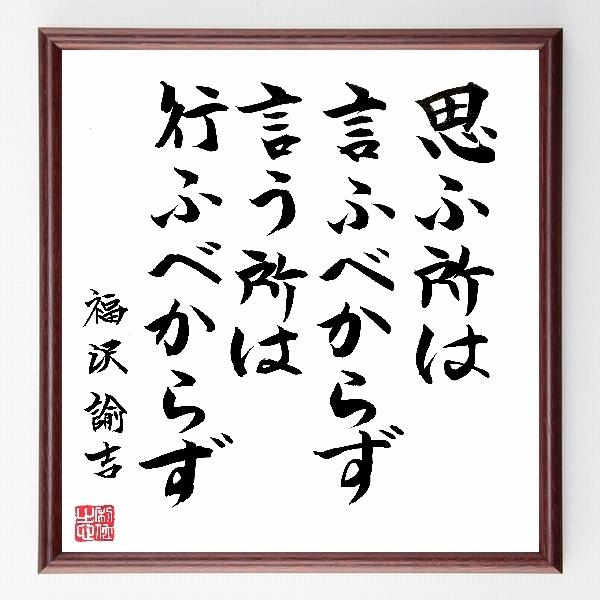 思ふ所は
言ふべからず
言う所は
行ふべからず
福沢諭吉